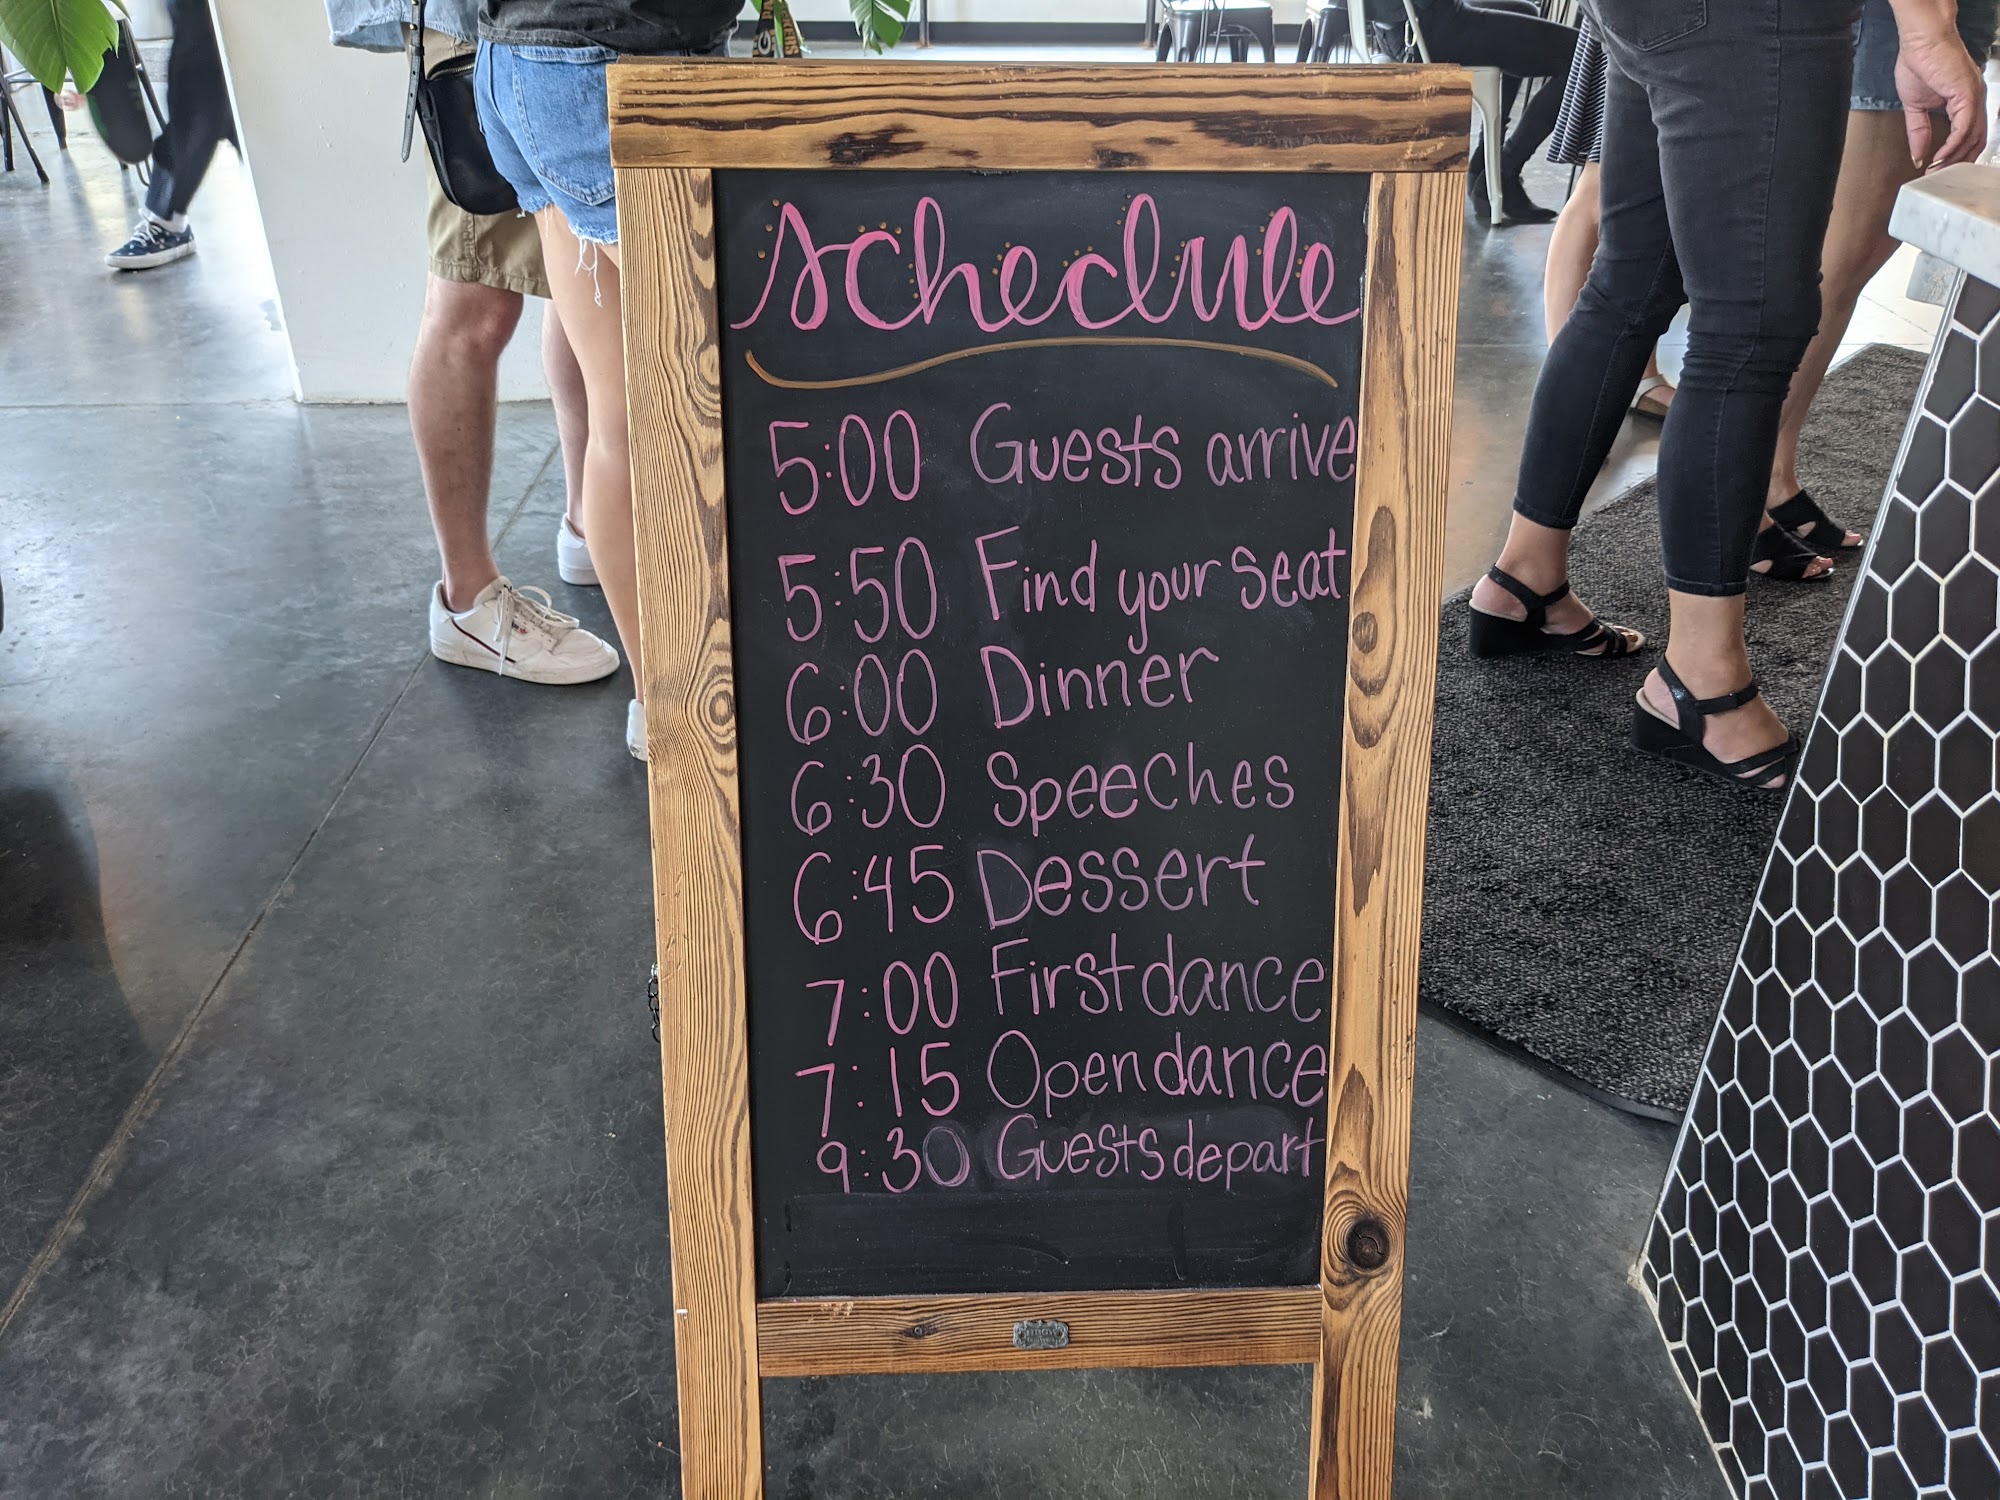 schedule
5:00 Guests arrive
5:50 Find your seat
6:00 Dinner
6:30 Speeches
6:45 Dessert
7:00 First dance
7:15 Open dance
9:30 Guests depart